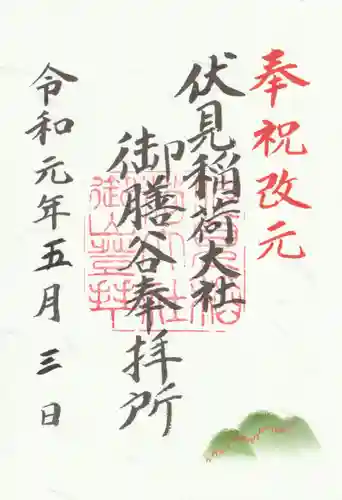 奉祝改元
伏見稲荷大社
御膳谷奉拝所
令和元年五月三日